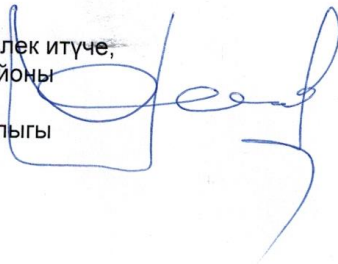 лек итүче,
йоны
лыгы